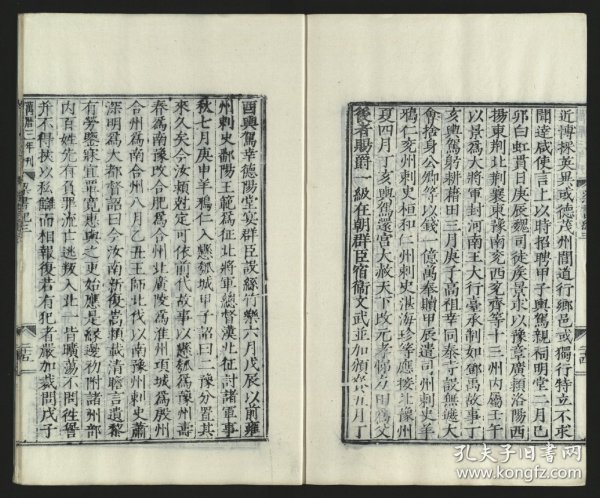 近博採英異或德茂州閭道行鄉邑或獨行特立不求
聞達咸使言上以時招聘甲子輿駕親祠明堂二月己
卯白虹貫日庚辰魏司徒侯景求以豫章廣潁洛陽西
揚東荆北荆襄東豫南兖西兖齊等十三州內屬壬午
以景爲大將軍封河南王大行臺承制如鄧禹故事丁
亥輿駕躬耕藉田三月庚子高祖幸同泰寺設無遮大
會捨身公卿等以錢一億萬奉贖甲辰遣司州刺史羊
鴉仁兖州刺史桓和仁州刺史湛海珍等應接北豫州
夏四月丁亥輿駕還宮大赦天下改元孝悌力田爲父
後者賜爵一級在朝群臣宿衛文武並加頒賚五月丁
酉輿駕幸德陽堂宴群臣設絲竹樂六月戊辰以前雍
州刺史鄱陽王範爲征北將軍總督漢北征討諸軍事
秋七月庚申羊鴉仁入懸瓠城甲子詔曰二豫分置其
來久矣今汝潁剋定可依前代故事以懸瓠爲豫州壽
春爲南豫改合肥爲合州北廣陵爲淮州項城爲殷州
合州爲南合州八月乙丑王師北伐以南豫州刺史蕭
深明爲大都督詔曰今汝南新復嵩潁載清瞻言遺黎
有勞鑒寐宜覃寬惠與之更始應是緣邊初附諸州部
內百姓先有負罪流亡逃叛入北一皆曠蕩不問徃愆
并不得挾以私讎而相報復若有犯者嚴加裁問戊子
萬曆三年刊
孔夫子旧书网
www.kongfz.com